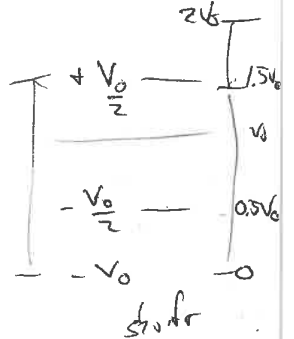 2V₀
+ V₀/2 1.5V₀
V₀
- V₀/2 0.5V₀
- V₀ 0